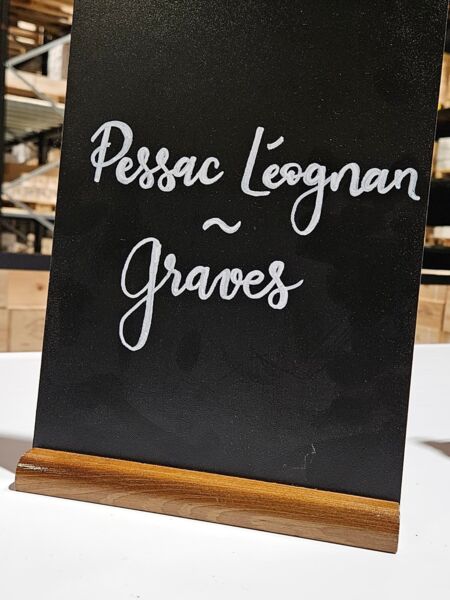 Pessac Léognan
~
Graves